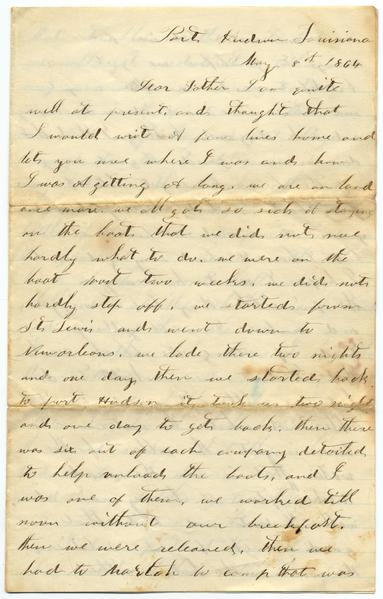 Port Hudson Louisiana
May 8th, 1864
Dear Father I am quite
well at present, and thought that
I would writ A few lines home and
lets you now where I was and how
I was A getting A long. we are on land
once more. we all got so sick A staying
on the boats that we did nots now
hardly what to do. we were on the
boat two weeks, we did nots
hardly step off. we started from
St Lewis and went down to
Neworleans. we lade there two nights
and one day then we started back
to port Hudson it took us two night
and one day to gets back. then there
was six out of each company detailed
to help unloads the boats, and I
was one of them, we worked till
noon without our breckfast.
then we were releaced. then we
had to march to camp that was